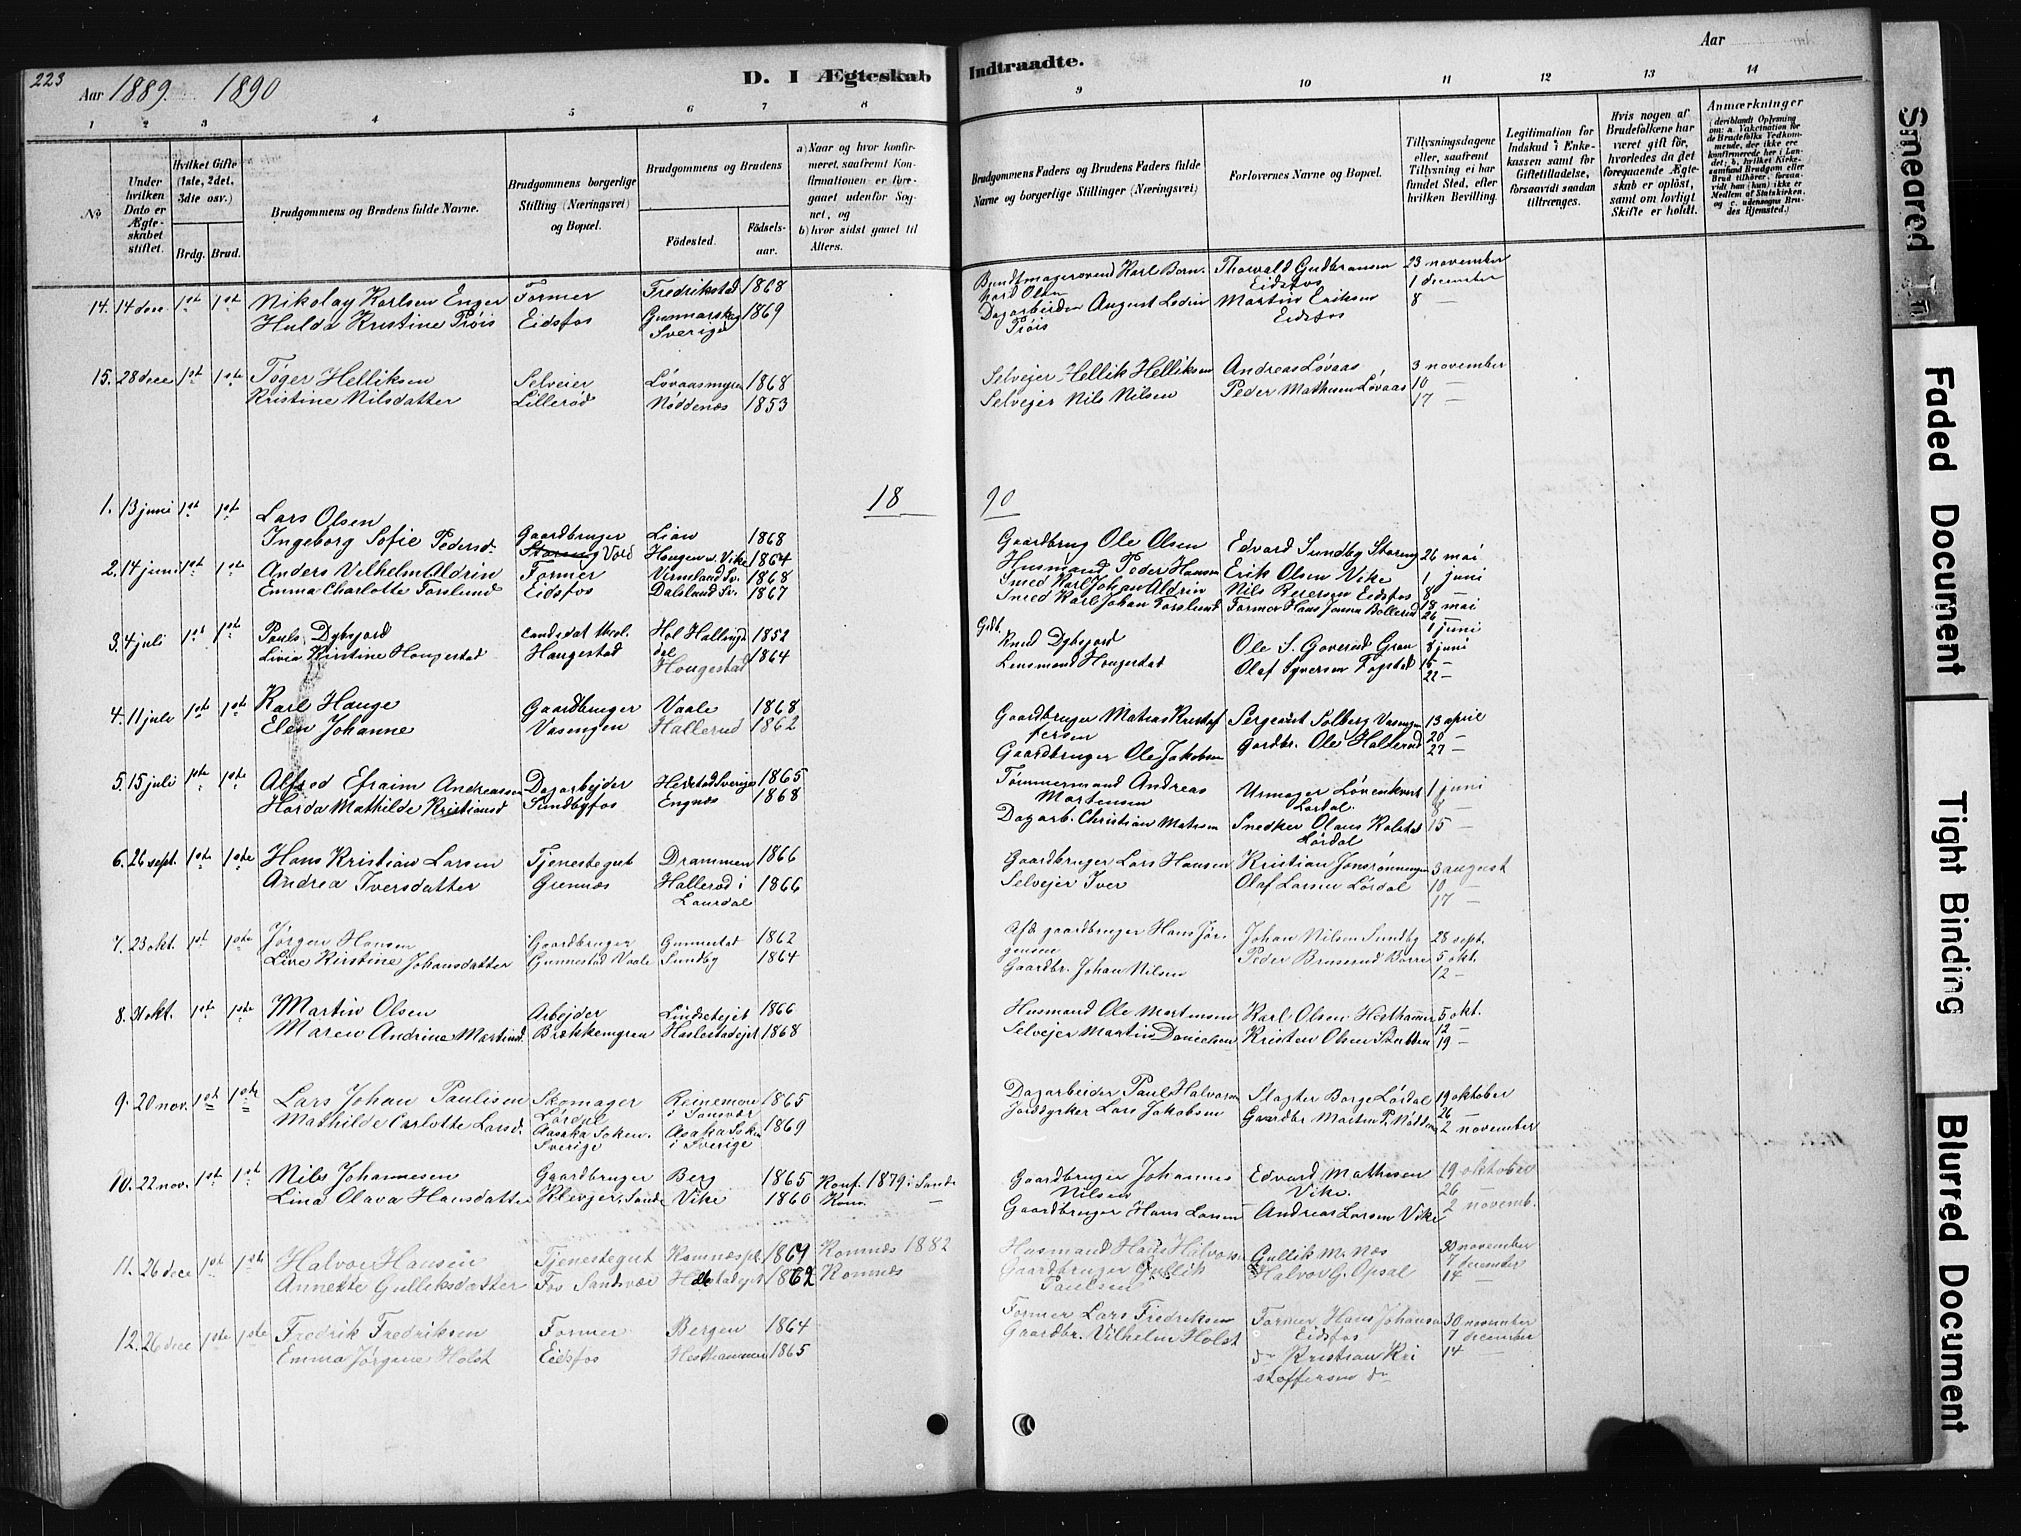 223
Aar 1889. 1890
D. I Ægteskab Indtraadte.
Aar
1 2 3 4 5 6 7 8 9 10 11 12 13 14
No
Under hvilken Dato er Ægteskabet stiftet.
Hvilket Gifte (1ste, 2det, 3die osv.)
Brdg. Brud.
Brudgommens og Brudens fulde Navne.
Brudgommens borgerlige Stilling (Næringsvei) og Bopæl.
Brudgommens og Brudens
Födested.
Födselsaar.
a) Naar og hvor konfirmeret, saafremt Konfirmationen er foregaaet udenfor Sognet, og
b) hvor sidst gaaet til Alters.
Brudgommens Faders og Brudens Faders fulde Navne og borgerlige Stillinger (Næringsvei)
Forlovernes Navne og Bopæl.
Tillysningsdagene eller, saafremt Tillysning ei har fundet Sted, efter hvilken Bevilling.
Legitimation for Indskud i Enkekassen samt for Giftetilladelse, forsaavidt saadan tiltrænges.
Hvis nogen af Brudefolkene har været gift før, hvorledes da det foregaaende Ægteskab er oplöst, samt om lovligt Skifte er holdt.
Anmærkninger (deriblandt Oplysning om: a. Vakcination for de Brudefolks Vedkommende, der ikke ere konfirmerede her i Landet; b. hvilket Kirkesamfund Brudgom eller Brud tilhører, forsaavidt han (hun) ikke er Medlem af Statskirken, og c. udensogns Brudes Hjemsted.)
14. 14 dece. 1ste 1ste Nikolay Karlsen Enger Former Fredrikstad 1868 Karl Thorvald Gudbransen 23 november
Hulda Kristine Tröis Eidsfos Gunnarskog Sverige 1869 Olsen Eidsfos 1 december
Dagarbeider August Tröis Martin Eriksen Eidsfos 8 —
15. 28 dece 1ste 1ste Töger Helliksen Selveier Lövaasmyren 1868 Selvejer Hellik Helliksen Andreas Lövaas 3 november
Kristine Nilsdatter Lilleröd Nöddenæs 1853 Selvejer Nils Nilsen Peder Mathisen Lövaas 10 —
17 —
18 90
1. 13 juni 1ste 1ste Lars Olsen Gaardbruger Lian 1868 Gaardbrug Ole Olsen Edvard Sundby 26 mai
Ingeborg Sofie Pedersd. Hougen v. Vike 1864 Husmand Peder Hansen Erik Olsen Vike 1 juni
2. 14 juni 1ste 1ste Anders Vilhelm Aldrin Former Vermland Sv. 1868 Smed Karl Johan Aldrin Nils Eidsfos 8 —
Emma Charlotte Forslund Eidsfos Dalsland Sv. 1867 Smed Karl Johan Forslund Former Hans 18 mai
26 —
1 juni
3. 4 juli 1ste 1ste Pauls Dybsjord Hol Hallingdal 1852 Gdb. Knud Dybsjord Ole S. Gran 8 juni
Livia Kristine Hougestad Haugestad Hougestad 1864 Lensmand Hougestad Olaf Syversen 15 —
22 —
4. 11 juli 1ste 1ste Karl Hauge Gaardbruger Vaale 1868 Gaardbruger Matias Kristoffersen Sergeant Solberg 13 april
Elen Johanne Vasengen Hallerud 1862 Gaardbruger Ole Jakobsen Gardbr. Ole Hallerud 20 —
27 —
5. 15 juli 1ste 1ste Alfred Efraim Andreassen Dagarbejder 1865 Tömmermand Andreas Mortensen Urmager Lövenkvist Lördal 1 juni
Mathilde Kristiansd Sundbyfos Engnæs 1868 Dagarb. Christian Snedker Olaus Lördal 8 —
15 —
6. 26 sept. 1ste 1ste Hans Kristian Larsen Tjenestegut Drammen 1866 Gaardbruger Lars Hansen Kristian 3 august
Andrea Iversdatter Grennæs Halleröd i Laurdal 1866 Selvejer Iver Olaf Larsen Lördal 10 —
17 —
7. 23 okt. 1ste 1ste Jörgen Hansen Gaardbruger Gunnestad 1862 Afd. gaardbruger Hans Jörgensen Johan Nilsen Sundby 28 sept.
Live Kirstine Johansdatter Gunnestad Vaale Sundby 1864 Gaardbr. Johan Nilsen Peder Bruserud Borre 5 okt.
12 —
8. 31 okt. 1ste 1ste Martin Olsen Arbejder 1866 Husmand Ole Martinsen Karl Olsen Hesthamer 5 okt.
Maren Andrine Martinsd. 1868 Selvejer Martin Danielsen Kristen Olsen 12 —
19 —
9. 20 nov. 1ste 1ste Lars Johan Paulisen Skomager Lördal Reinemoen i Sansvær 1865 Dagarbeider Paul Halvorsen Slagter Borge Lördal 19 oktober
Mathilde Carlotte Larsd. Aasaka Soken. Sverige Asaka Soken i Sverige 1869 Jordstyrker Lars Jakobsen Gaardbr Martin P. 26 —
2 november
10. 22 nov. 1ste 1ste Nils Johannesen Gaardbruger Berg 1865 Konf. 1879 i Sande Gaardbruger Johannes Nilsen Edvard Mathisen Vike. 19 oktober
Lina Olava Hansdatter Klevjer, Sande Vike 1860 Kom. — Gaardbruger Hans Larsen Andreas Larsen Vike 26 —
2 novemb.
11. 26 dece 1ste 1ste Halvor Hansen Tjenestegut 1869 Romnæs 1882 Husmand Hans Halvors Gullik M. Næs 30 november
Annette Gulliksdatter Fos Sandsvær 1862 Romnæs Gaardbruger Gullik Paulsen Halvor G. Opsal 7 december
14 —
12. 26 dece 1ste 1ste Fredrik Fredriksen Former Bergen 1864 Former Lars Fredriksen Former Hans Johansen Eidsfos 30 november
Emma Jörgine Holst Eidsfos Hesthammer 1865 Gaardbr. Vilhelm Holst do Kristian Kristoffersen do 7 december
14 —
Smeared In
Faded Document
Tight Binding
Blurred Document